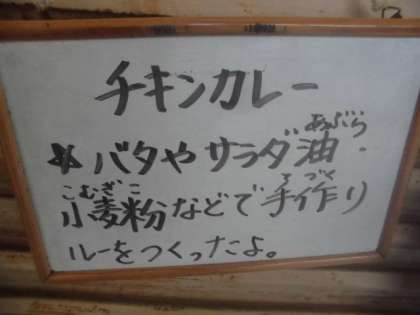 チキンカレー
＊バタやサラダ油・
小麦粉などで手作り
ルーをつくったよ。
あぶら
こむぎこ
てづく